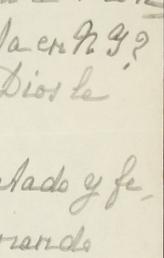 la en N Y?
Dios le
lado y fe,
nando